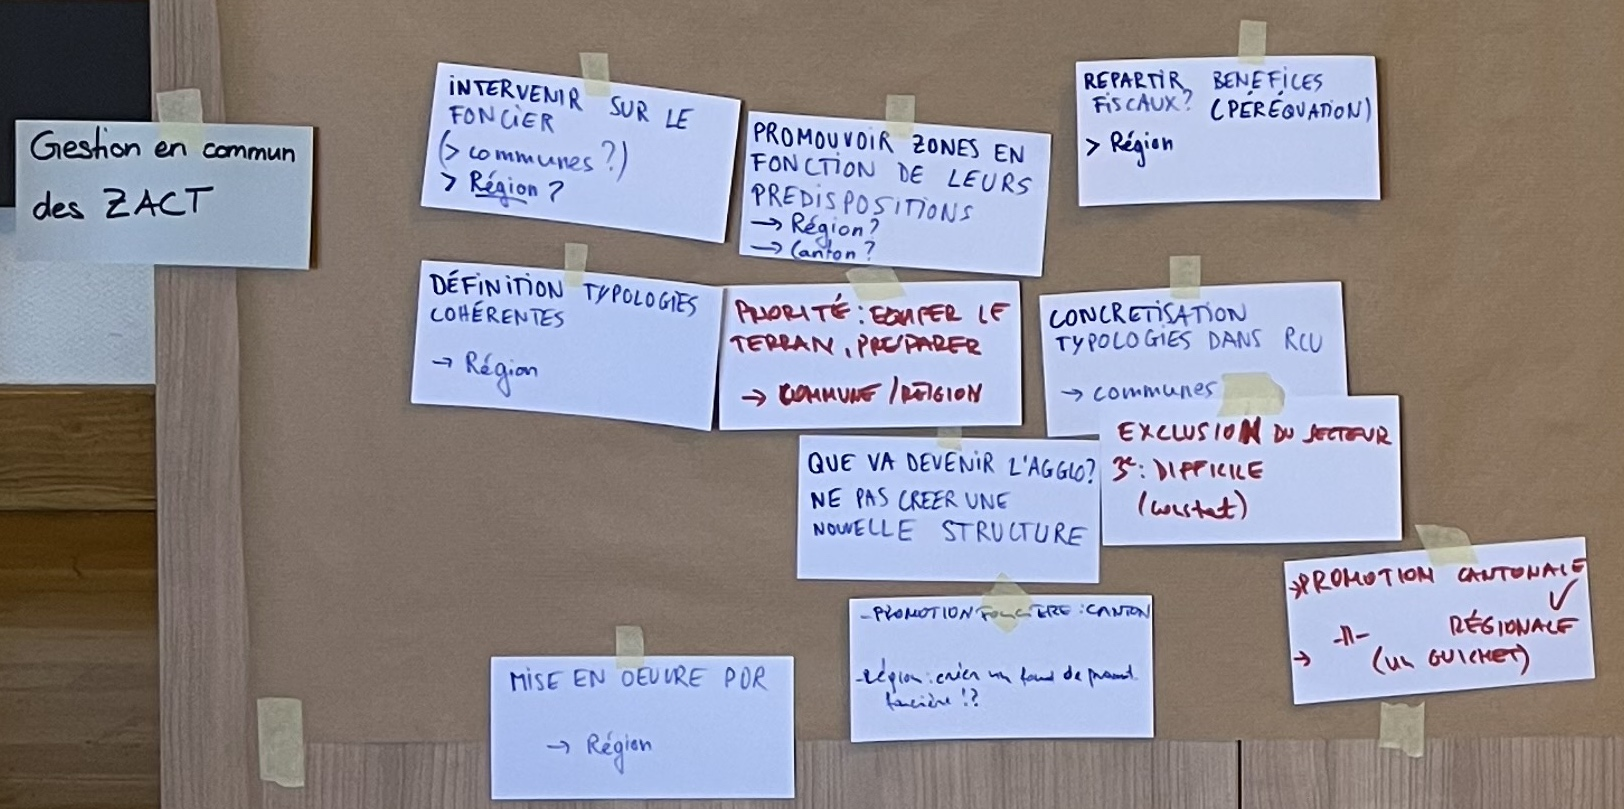 Gestion en commun
des ZACT
INTERVENIR SUR LE
FONCIER
(> communes ?)
> Région ?
PROMOUVOIR ZONES EN
FONCTION DE LEURS
PREDISPOSITIONS
→ Région ?
→ Canton ?
REPARTIR BENEFICES
FISCAUX? (PÉRÉQUATION)
> Région
DÉFINITION TYPOLOGIES
COHÉRENTES
→ Région
PRIORITÉ : EQUIPER LE
TERRAIN, PREPARER
→ COMMUNE / RÉGION
CONCRETISATION
TYPOLOGIES DANS RCU
→ communes
QUE VA DEVENIR L'AGGLO?
NE PAS CREER UNE
NOUVELLE STRUCTURE
EXCLUSION DU SECTEUR
3e : DIFFICILE
(constat)
→ PROMOTION CANTONALE
✓
-11- RÉGIONALE
→ (un GUICHET)
- PROMOTION FONCIÈRE : CANTON
- Région : créer un fond de promot.
foncière !?
MISE EN OEUVRE PDR
→ Région